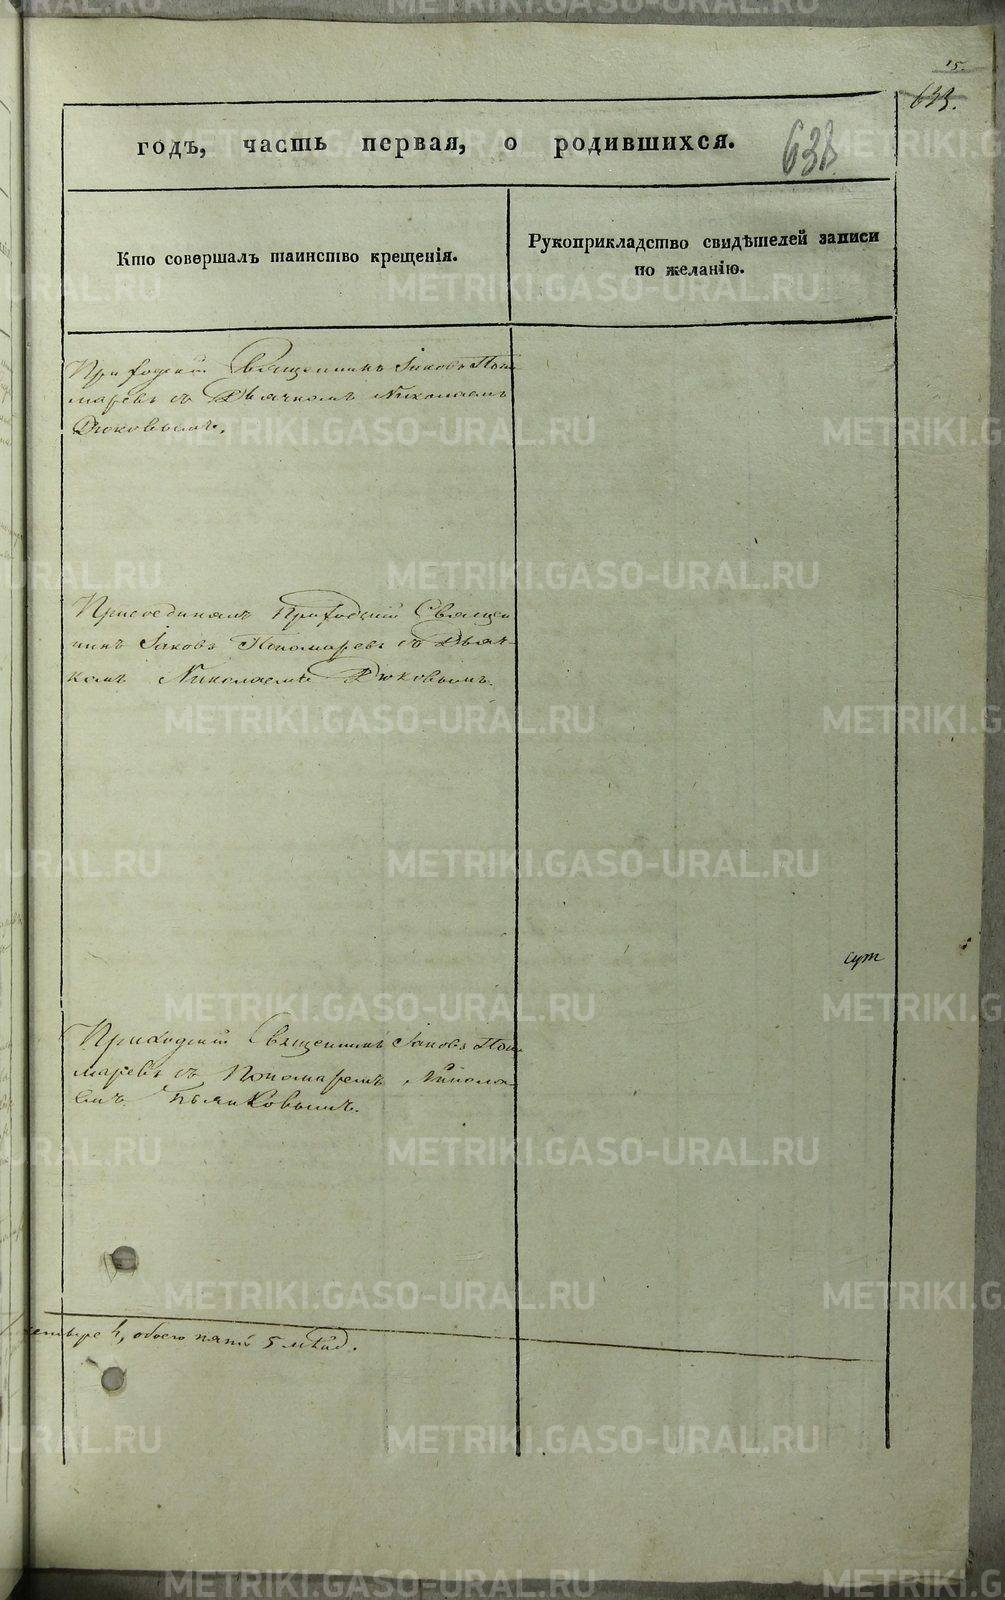 15.
633.
годъ, часть первая, о родившихся.
638
Кто совершалъ таинство крещенія.
Рукоприкладство свидѣтелей записи
по желанію.
Приходскій Священникъ Іаковъ Поно
маревъ съ Дьячкомъ Николаемъ
Дюковымъ.
Присоединялъ Приходскій Священ
никъ Іаковъ Пономаревъ съ Дьяч-
комъ Николаемъ Дюковымъ.
Приходскій Священникъ Іаковъ Поно
маревъ съ Пономаремъ Никола
емъ
четыре 4, обоего пять 5
METRIKI.GASO-URAL.RU